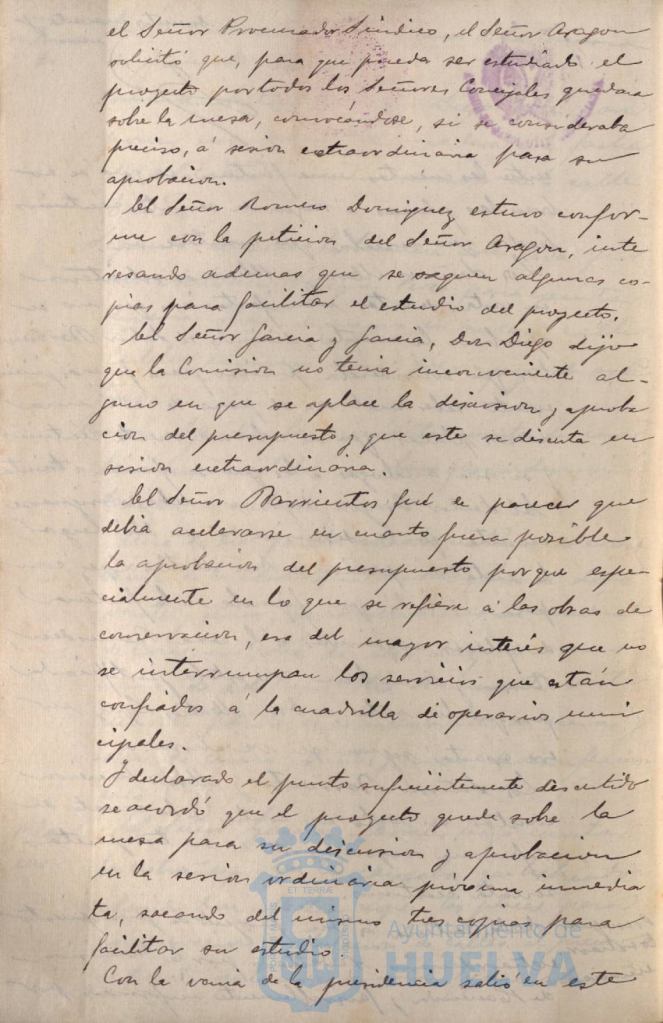 el Señor Procurador Síndico, el Señor Aragon
solicitó que, para que pueda ser estudiado el
proyecto por todos los Señores Concejales quedara
sobre la mesa, convocándose, si se consideraba
preciso, á sesión extraordinaria para su
aprobacion.
El Señor Romero Dominguez estuvo confor-
me con la peticion del Señor Aragon, inte
resando ademas que se saquen algunas co-
pias para facilitar el estudio del proyecto.
El Señor Garcia y Garcia, Don Diego dijo
que la Comision no tenia inconveniente al-
guno en que se aplace la discusion y aproba
cion del presupuesto y que este se discuta en
sesion extraordinaria.
El Señor Barrientos fué de parecer que
debia acelerarse en cuanto fuera posible
la aprobacion del presupuesto porque espe-
cialmente en lo que se refiere á las obras de
conservacion, era del mayor interés que no
se interrumpan los servicios que están
confiados á la cuadrilla de operarios muni
cipales.
Y declarado el punto suficientemente discutido
se acordó que el proyecto quede sobre la
mesa para su discusion y aprobacion
en la sesion ordinaria próxima inmedia
ta, sacando del mismo tres copias para
facilitar su estudio.
Con la venia de la presidencia salió en este
Ayuntamiento de
HUELVA